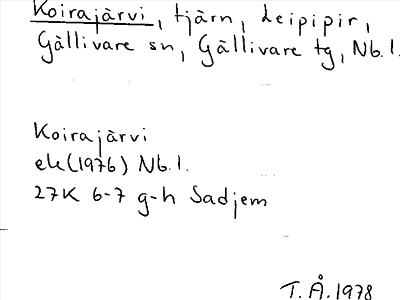 Koirajärvi, tjärn, Leipipir,
Gällivare sn, Gällivare tg, Nb.l.
Koirajärvi
ek(1976) Nb.l.
27K 6-7 g-h Sadjem
T.Å.1978